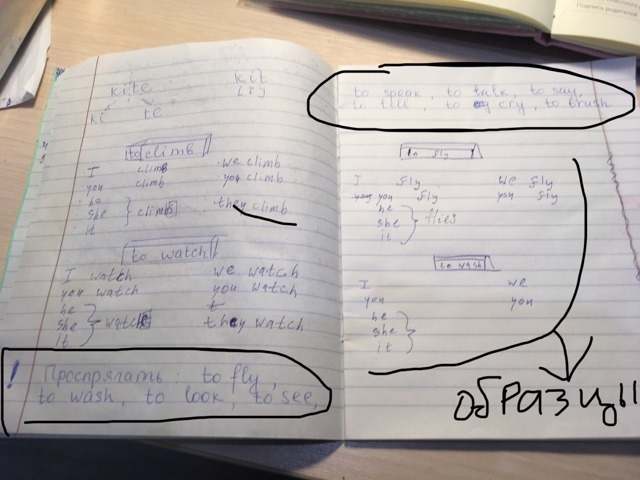 kite kit
ki te [i]
to climb
I climb we climb
you climb you climb
he
she climbs they climb
it
to watch
I watch we watch
you watch you watch
he t
she watches they watch
it
! Проспрягать: to fly,
to wash, to look, to see,
to speak, to talk, to say,
to tell, to cry, to brush
to fly
I fly we fly
you fly you fly
he
she flies
it
to wash
I we
you you
he
she
it
образцы